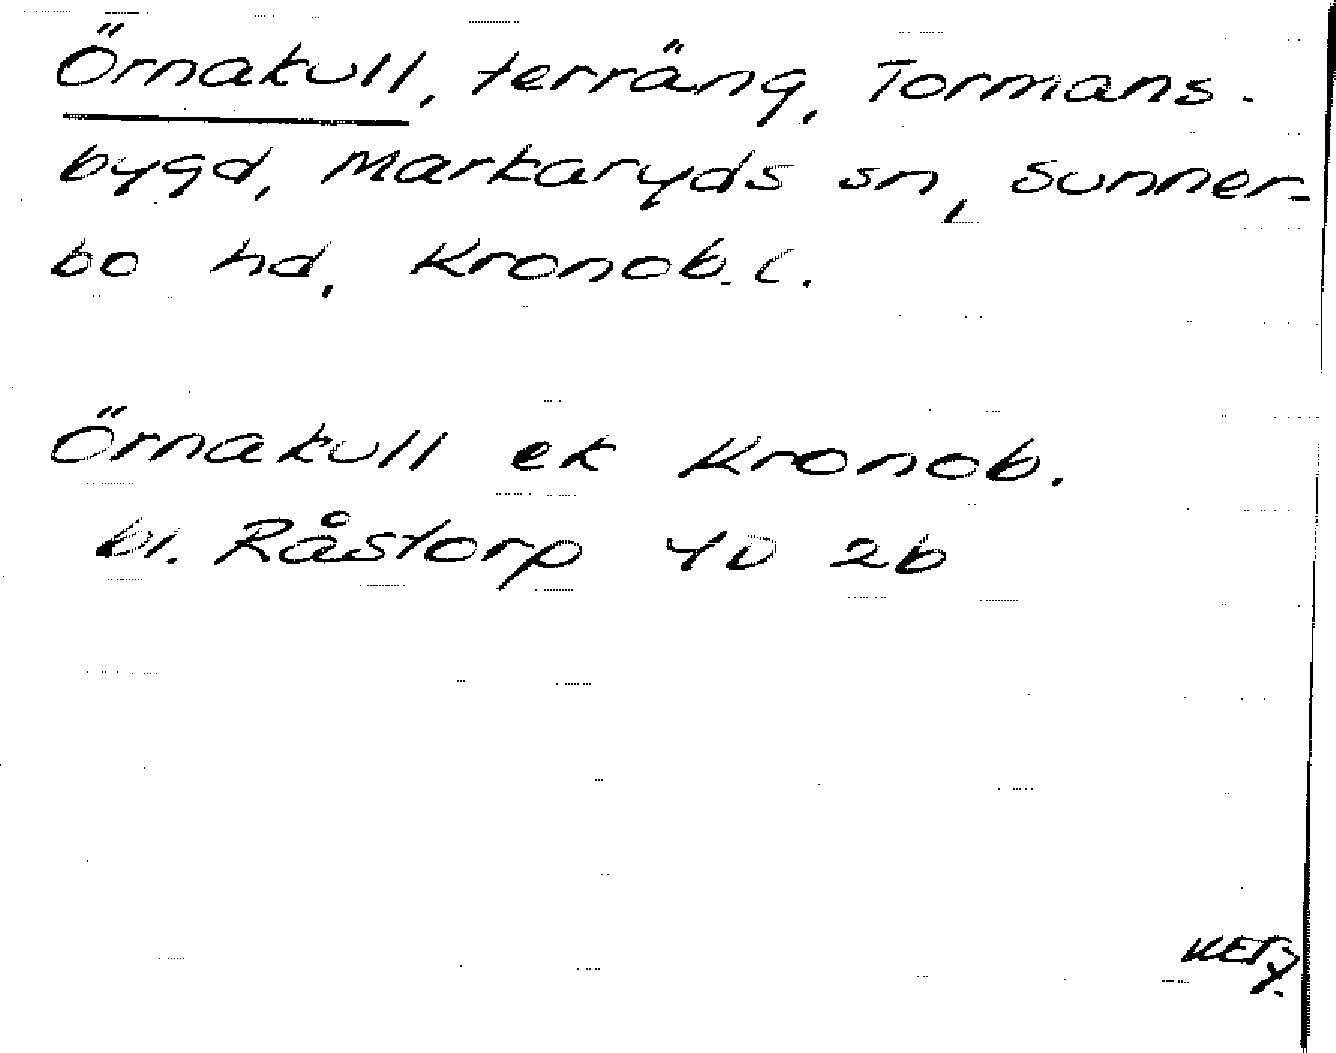 Örnakull, terräng, Tormans-
bygd, Markaryds sn, Sunner-
bo hd, Kronob. l.
Örnakull ek Kronob.
bl. Råstorp 4D 2b